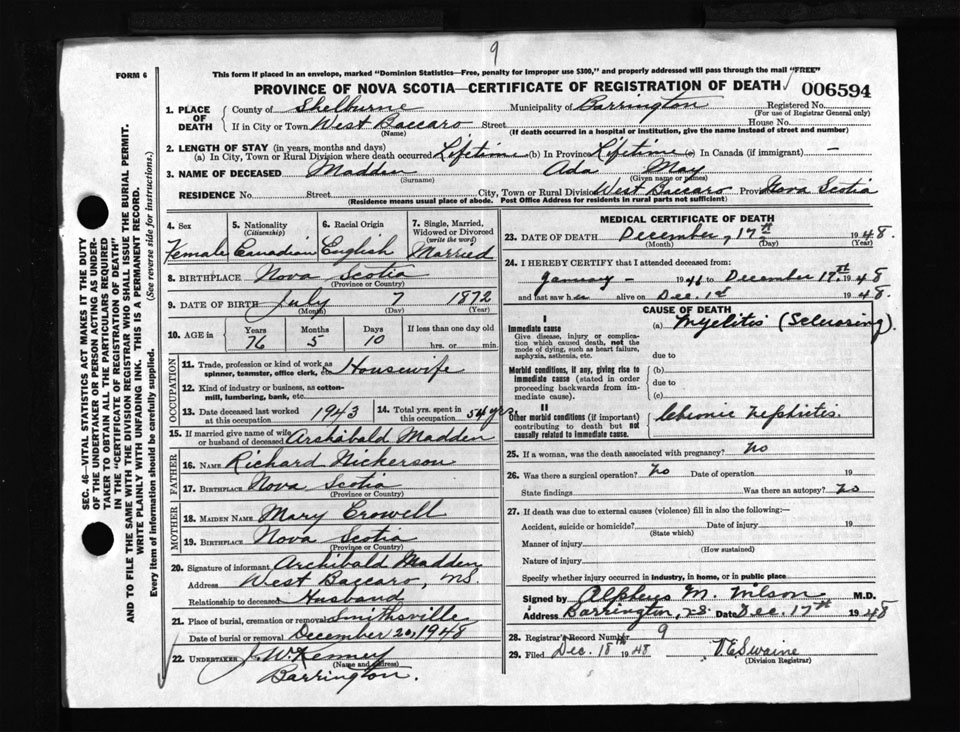 9
FORM 6
This form if placed in an envelope, marked "Dominion Statistics—Free, penalty for improper use $300," and properly addressed will pass through the mail "FREE"
PROVINCE OF NOVA SCOTIA—CERTIFICATE OF REGISTRATION OF DEATH
006594
1. PLACE OF DEATH
County of Shelburne Municipality of Barrington Registered No.
(For use of Registrar General only)
If in City or Town West Baccaro Street House No.
(Name) (If death occurred in a hospital or institution, give the name instead of street and number)
2. LENGTH OF STAY (in years, months and days)
(a) In City, Town or Rural Division where death occurred Lifetime (b) In Province Lifetime (c) In Canada (if immigrant) —
3. NAME OF DECEASED Madden Ada May
(Surname) (Given name or names)
RESIDENCE No. Street City, Town or Rural Division West Baccaro Province Nova Scotia
(Residence means usual place of abode. Post Office Address for residents in rural parts not sufficient)
4. Sex
Female
5. Nationality
(Citizenship)
Canadian
6. Racial Origin
English
7. Single, Married, Widowed or Divorced
(write the word)
Married
8. BIRTHPLACE Nova Scotia
(Province or Country)
9. DATE OF BIRTH July 7 1872
(Month) (Day) (Year)
10. AGE in Years Months Days If less than one day old
76 5 10 hrs. or min.
OCCUPATION
11. Trade, profession or kind of work as
spinner, teamster, office clerk, etc. Housewife
12. Kind of industry or business, as cotton-
mill, lumbering, bank, etc.
13. Date deceased last worked
at this occupation 1943
14. Total yrs. spent in
this occupation 54 yrs.
15. If married give name of wife
or husband of deceased Archibald Madden
FATHER
16. NAME Richard Nickerson
17. BIRTHPLACE Nova Scotia
(Province or Country)
MOTHER
18. MAIDEN NAME Mary Crowell
19. BIRTHPLACE Nova Scotia
(Province or Country)
20. Signature of informant Archibald Madden
Address West Baccaro, N.S.
Relationship to deceased Husband
21. Place of burial, cremation or removal Smithsville
Date of burial or removal December 20, 1948
22. UNDERTAKER J. W. Kenney
(Name and address)
Barrington.
MEDICAL CERTIFICATE OF DEATH
23. DATE OF DEATH December, 17th 1948.
(Month) (Day) (Year)
24. I HEREBY CERTIFY that I attended deceased from:
January – 1948 to December 17th 1948
and last saw her alive on Dec. 1st 1948.
CAUSE OF DEATH
I
Immediate cause
Give disease, injury or complication which caused death, not the mode of dying, such as heart failure, asphyxia, asthenia, etc.
(a) Myelitis
due to
Morbid conditions, if any, giving rise to immediate cause (stated in order proceeding backwards from immediate cause).
(b)
due to
(c)
II
Other morbid conditions (if important) contributing to death but not causally related to immediate cause.
Chronic nephritis.
25. If a woman, was the death associated with pregnancy? No
26. Was there a surgical operation? No Date of operation 19
State findings Was there an autopsy? No
27. If death was due to external causes (violence) fill in also the following:—
Accident, suicide or homicide? Date of injury 19
(State which)
Manner of injury
(How sustained)
Nature of injury
Specify whether injury occurred in industry, in home, or in public place
Signed by Alpheus M. Wilson M.D.
Address Barrington, N.S. Date Dec. 17th 1948
28. Registrar's Record Number 9
29. Filed Dec. 18th 1948 V. E. Swaine
(Division Registrar)
SEC. 46—VITAL STATISTICS ACT MAKES IT THE DUTY
OF THE UNDERTAKER OR PERSON ACTING AS UNDER-
TAKER TO OBTAIN ALL THE PARTICULARS REQUIRED
IN THE "CERTIFICATE OF REGISTRATION OF DEATH"
AND TO FILE THE SAME WITH THE DIVISION REGISTRAR WHO SHALL ISSUE THE BURIAL PERMIT.
WRITE PLAINLY WITH UNFADING INK. THIS IS A PERMANENT RECORD.
Every item of information should be carefully supplied. (See reverse side for instructions.)